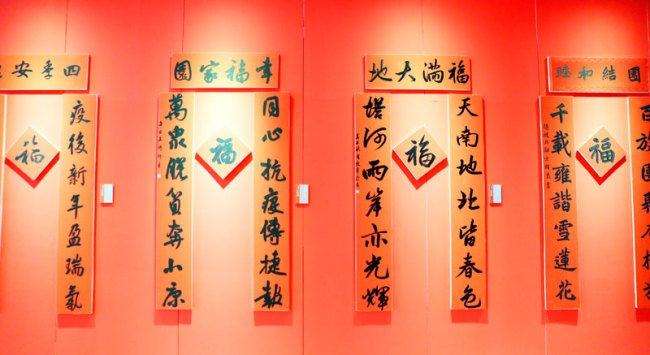 四季安
疫後新年盈瑞氣
福
幸福家園
同心抗疫傳捷報
萬衆脫貧奔小康
福
福滿大地
天南地北皆春色
塔河兩岸亦光輝
福
團結和睦
百族團
千載雍諧雪蓮花
福